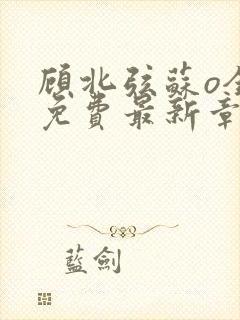 顾北弦蘇o
免費最新章
藍劍